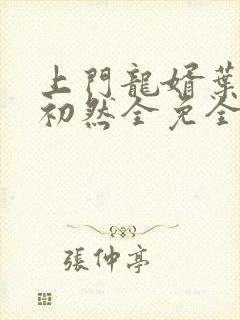 上門龍婿葉
初然全免全
張仲亭